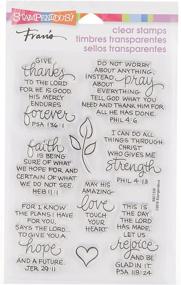 STAMPENDOUS!
Fran's
clear stamps
timbres transparentes
sellos transparentes
GIVE
thanks
TO THE LORD
FOR HE IS GOOD
HIS MERCY
ENDURES
forever
PSA 136:1
DO NOT WORRY
ABOUT ANYTHING;
INSTEAD pray
ABOUT
EVERYTHING.
TELL GOD WHAT YOU
NEED AND THANK HIM FOR
ALL HE HAS DONE.
PHIL 4:6
faith
IS BEING
SURE OF WHAT
WE HOPE FOR, AND
CERTAIN OF WHAT
WE DO NOT SEE.
HEB 11:1
I CAN DO ALL
THINGS THROUGH
CHRIST
WHO GIVES ME
strength
PHIL 4:13
MAY HIS
AMAZING
LOVE
TOUCH YOUR
HEART
FOR I KNOW
THE PLANS I HAVE
FOR YOU,
SAYS THE LORD...
TO GIVE YOU A
hope
AND A FUTURE.
JER 29:11
THIS IS
THE DAY
THE LORD
HAS MADE;
LET US
rejoice
AND BE
GLAD IN IT.
PSA 118:24